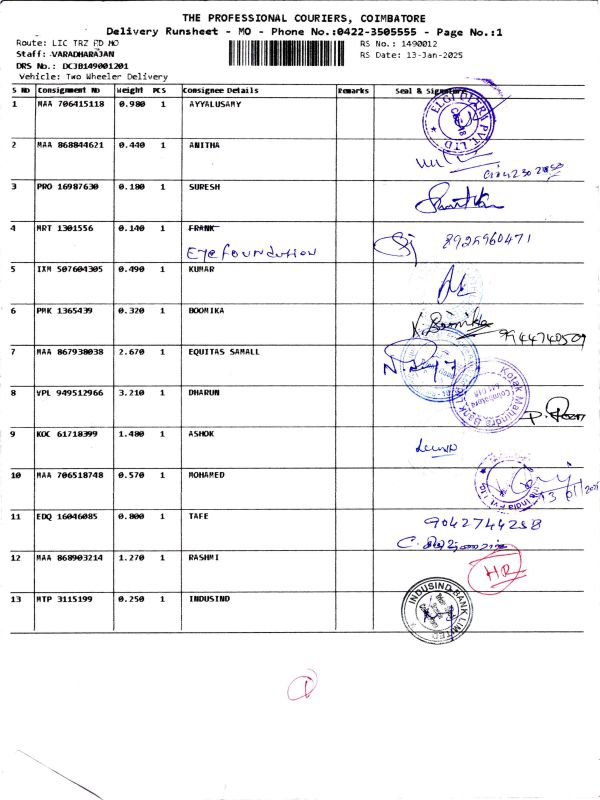 THE PROFESSIONAL COURIERS, COIMBATORE
Delivery Runsheet - MO - Phone No.:0422-3505555 - Page No.:1
Route: LIC TRZ RD MO
RS No.: 1490012
Staff: VARADHARAJAN
RS Date: 13-Jan-2025
DRS No.: DCJB149001201
Vehicle: Two Wheeler Delivery
S No Consignment No Weight PCS Consignee Details Remarks Seal & Signature
1 MAA 706415118 0.980 1 AYYALUSAMY
ELGI DIARY PVT. LTD
2 MAA 868844621 0.440 1 ANITHA
3 PRO 16987630 0.180 1 SURESH
4 MRT 1301556 0.140 1 FRANK
Eye foundation
8925960471
5 IXM 507604305 0.490 1 KUMAR
6 PMK 1365439 0.320 1 BOOMIKA
K. Boomika
9944740509
7 MAA 867938038 2.670 1 EQUITAS SAMALL
8 VPL 949512966 3.210 1 DHARUN
Kotak Mahindra Bank
Coimbatore
9 KOC 61718399 1.480 1 ASHOK
10 MAA 706518748 0.570 1 MOHAMED
India Pvt. Ltd.
13/01/2025
11 EDQ 16046085 0.800 1 TAFE
9042744258
12 MAA 868903214 1.270 1 RASHMI
HR
13 MTP 3115199 0.250 1 INDUSIND
INDUSIND BANK LIMITED
1